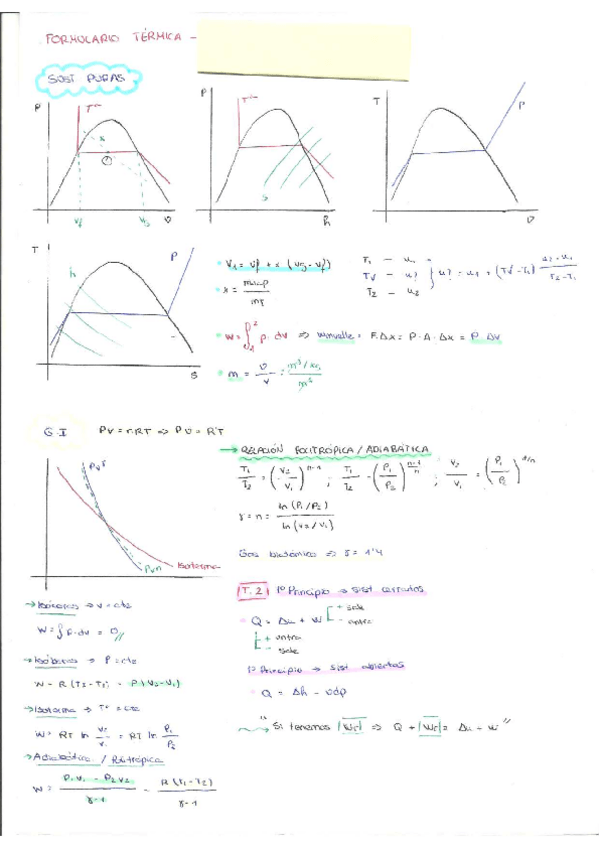 FORMULARIO TÉRMICA -
SUST PURAS
P
Tª
x
①
Vf
Vg
v
P
Tª
s
h
T
P
v
T
P
h
s
V₁ = vf + x (vg - vf)
x = mvap / mT
T₁ - u₁
Tx - u?
T₂ - u₂
W = ∫₁² p · dv ⇒ Wmuelle = F·Δx = P·A·Δx = P ΔV
m = V / v
G.I
PV = nRT ⇒ Pv = RT
Pvᵞ
Pvn
Isoterma
→ RELACIÓN POLITRÓPICA / ADIABÁTICA
T₁/T₂ = (V₂/V₁)ⁿ⁻¹ ; T₁/T₂ = (P₁/P₂)^((n-1)/n) ; V₂/V₁ = (P₁/P₂)^(1/n)
γ = n = ln (P₁/P₂) / ln (V₂/V₁)
Gas biatómico ⇒ γ = 1'4
→ Isócoras → v = cte
W = ∫ P·dv = 0//
→ Isóbaras → P = cte
W = R (T₂ - T₁) = P (V₂ - V₁)
→ Isoterma → Tª = cte
W = RT ln V₂/V₁ = RT ln P₁/P₂
→ Adiabática / Politrópica
W = P₁V₁ - P₂V₂ / γ-1 = R (T₁ - T₂) / γ-1
T.2 1º Principio → sist cerrados
Q = Δu + W [+ sale
- entra
[+ entra
- sale
1º Principio → sist abiertos
Q = Δh - vdp
"Si tenemos |Wc| ⇒ Q + |Wc| = Δu + W"